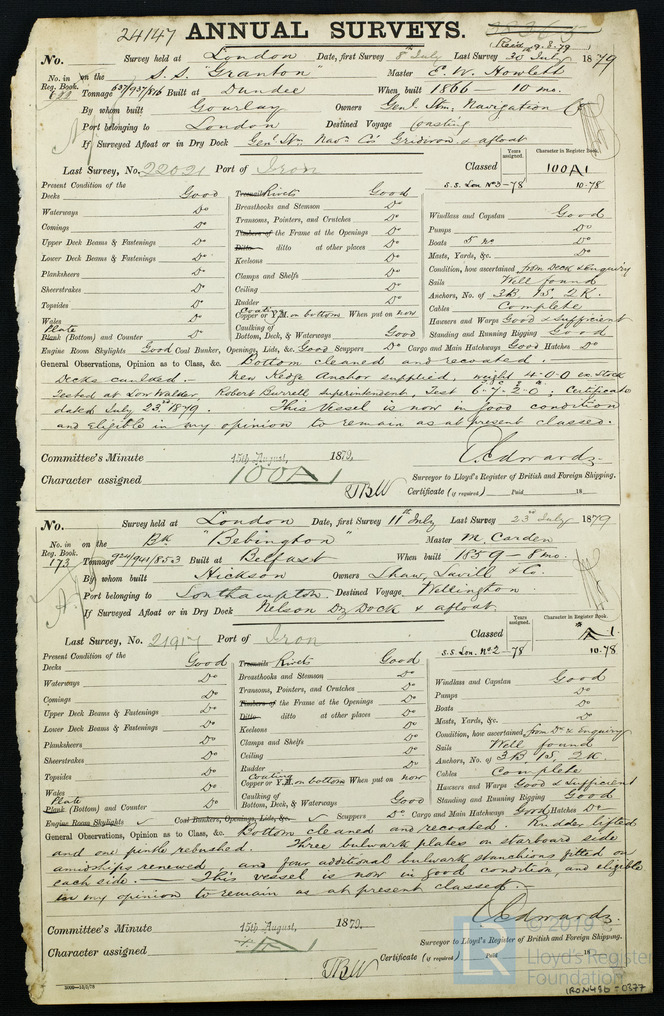 24147 ANNUAL SURVEYS.
Recd 9.8.79
No. Survey held at London Date, first Survey 8th July Last Survey 30 July 1879
No. in Reg. Book. 622 on the S.S. "Granton" Master E. W. Howlett
Tonnage 637/937/816 Built at Dundee When built 1866 - 10 mo.
By whom built Gourlay Owners Genl. Stm. Navigation Co
Port belonging to London Destined Voyage Coasting
If Surveyed Afloat or in Dry Dock Genl Stm Navn Co's Gridiron & afloat
Last Survey, No. 22021 Port of Iron Classed Years assigned. Character in Register Book. 100A1
S.S. Lon. No 3 - 78 10.78
Present Condition of the
Decks Good
Waterways Do
Comings Do
Upper Deck Beams & Fastenings Do
Lower Deck Beams & Fastenings Do
Planksheers Do
Sheerstrakes Do
Topsides Do
Wales Do
Plate Plank (Bottom) and Counter Do
Treenails Rivets Good
Breasthooks and Stemson Do
Transoms, Pointers, and Crutches Do
Timbers of the Frame at the Openings Do
Ditto ditto at other places Do
Keelsons Do
Clamps and Shelfs Do
Ceiling Do
Rudder Do
Coating Copper or Y.M. on bottom When put on now
Caulking of Bottom, Deck, & Waterways Good
Windlass and Capstan Good
Pumps Do
Boats 5 no Do
Masts, Yards, &c. Do
Condition, how ascertained from Deck & Enquiry
Sails Well found
Anchors, No. of 3B, 1S, 2K.
Cables Complete
Hawsers and Warps Good & Sufficient
Standing and Running Rigging Good
Engine Room Skylights Good Coal Bunker, Openings, Lids, &c. Good Scuppers Do Cargo and Main Hatchways Good Hatches Do
General Observations, Opinion as to Class, &c. Bottom cleaned and recoated.
Decks caulked. New Kedge Anchor supplied, weight 4-0-0 ex Stock
Tested at Low Walker, Robert Burrell Superintendent, Test 6-7-2-0; Certificate
dated July 23rd 1879. This Vessel is now in good condition
and eligible in my opinion to remain as at present classed.
Committee's Minute 15th August, 1879. Edwards.
Character assigned 100A1 Surveyor to Lloyd's Register of British and Foreign Shipping.
Certificate (if required) Paid 18
No. Survey held at London Date, first Survey 11th July Last Survey 23rd July 1879
No. in Reg. Book. 173 on the Bk "Bebington" Master M. Carden
Tonnage 924/941/853 Built at Belfast When built 1859 - 8 mo.
By whom built Hickson Owners Shaw, Savill & Co.
Port belonging to Southampton Destined Voyage Wellington.
If Surveyed Afloat or in Dry Dock Nelson Dry Dock & afloat
Last Survey, No. 21917 Port of Iron Classed Years assigned. Character in Register Book. A 1.
S.S. Lon. No 2 - 78 10.78
Present Condition of the
Decks Good
Waterways Do
Comings Do
Upper Deck Beams & Fastenings Do
Lower Deck Beams & Fastenings Do
Planksheers Do
Sheerstrakes Do
Topsides Do
Wales Do
Plate Plank (Bottom) and Counter Do
Treenails Rivets Good
Breasthooks and Stemson Do
Transoms, Pointers, and Crutches Do
Timbers of the Frame at the Openings Do
Ditto ditto at other places Do
Keelsons Do
Clamps and Shelfs Do
Ceiling Do
Rudder Do
Coating Copper or Y.M. on bottom When put on now
Caulking of Bottom, Deck, & Waterways Good
Windlass and Capstan Good
Pumps Do
Boats Do
Masts, Yards, &c. Do
Condition, how ascertained from Dk & Enquiry
Sails Well found
Anchors, No. of 3B, 1S, 2K
Cables Complete
Hawsers and Warps Good & Sufficient
Standing and Running Rigging Good
Engine Room Skylights Coal Bunkers, Openings, Lids, &c. Scuppers Do Cargo and Main Hatchways Good Hatches Do
General Observations, Opinion as to Class, &c. Bottom cleaned and recoated. Rudder lifted
and one pintle rebushed. Three bulwark plates on starboard side
amidships renewed, and four additional bulwark stanchions fitted on
each side. This vessel is now in good condition, and eligible
in my opinion to remain as at present classed.
Committee's Minute 15th August, 1879. Edwards.
Character assigned A 1 Surveyor to Lloyd's Register of British and Foreign Shipping.
Certificate (if required) Paid 18
© 2019
LR Lloyd's Register Foundation
IRON496-0377